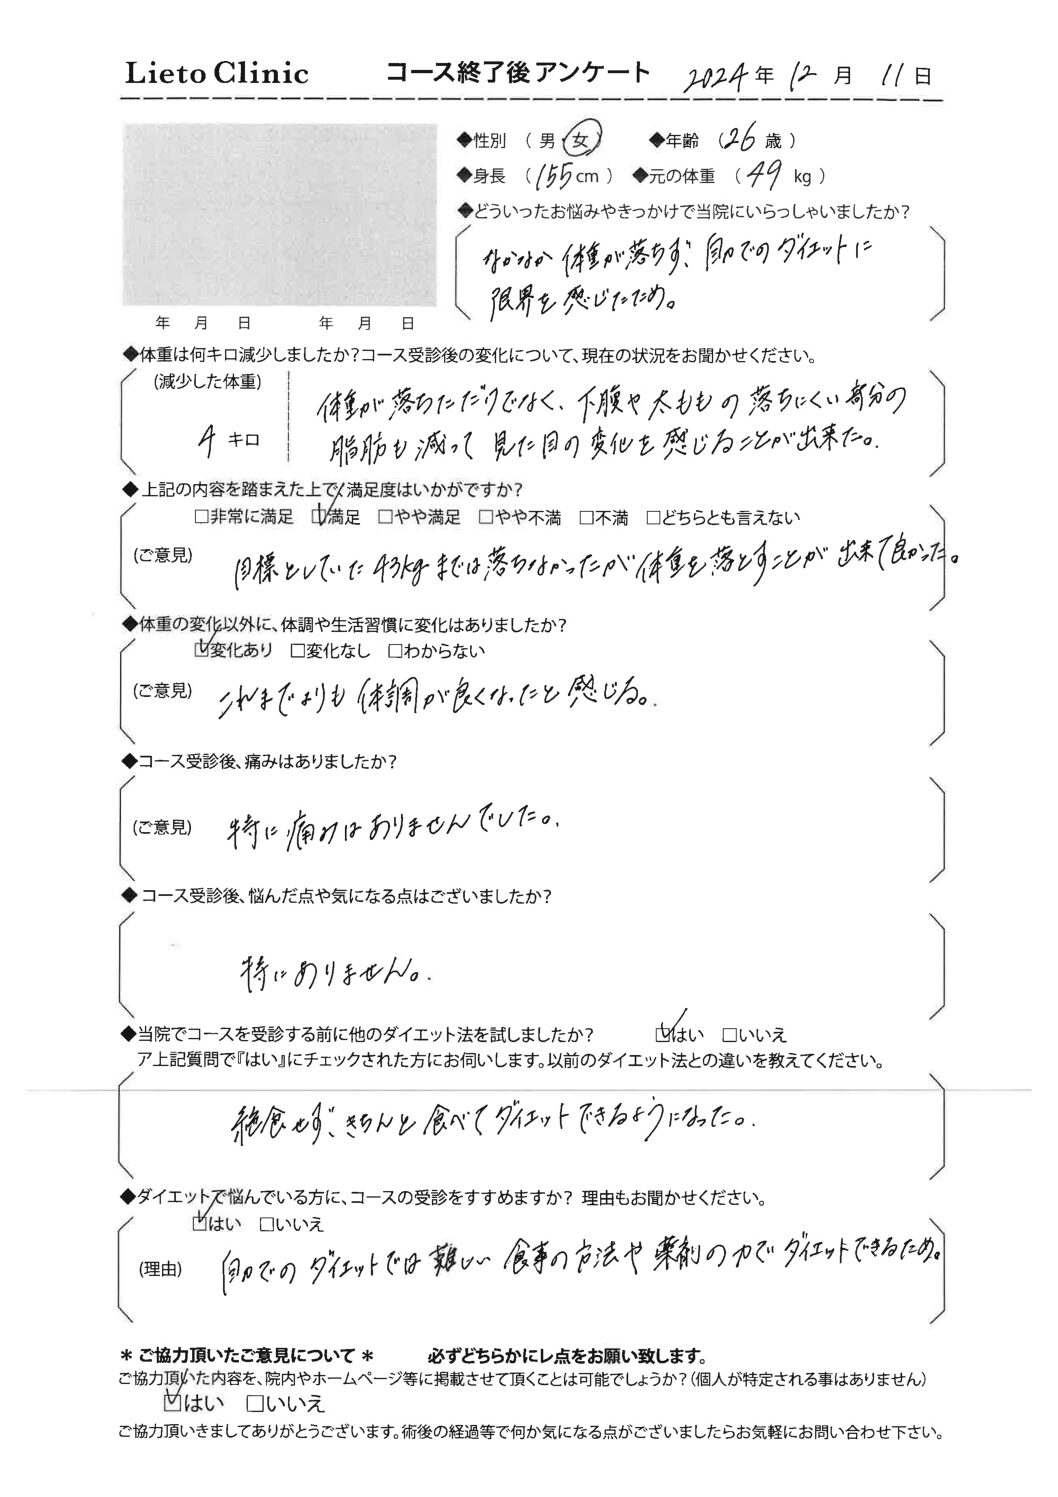 Lieto Clinic コース終了後アンケート 2024年 12月 11日
◆性別 ( 男・女 ) ◆年齢 ( 26 歳 )
◆身長 ( 155 cm ) ◆元の体重 ( 49 kg )
◆どういったお悩みやきっかけで当院にいらっしゃいましたか?
なかなか体重が落ちず、自力でのダイエットに
限界を感じたため。
年 月 日 年 月 日
◆体重は何キロ減少しましたか?コース受診後の変化について、現在の状況をお聞かせください。
(減少した体重)
4 キロ
体重が落ちただけでなく、下腹や太ももの落ちにくい部分の
脂肪も減って見た目の変化を感じることが出来た。
◆上記の内容を踏まえた上で、満足度はいかがですか?
□非常に満足 ☑満足 □やや満足 □やや不満 □不満 □どちらとも言えない
(ご意見) 目標としていた43kgまでは落ちなかったが体重を落とすことが出来て良かった。
◆体重の変化以外に、体調や生活習慣に変化はありましたか?
☑変化あり □変化なし □わからない
(ご意見) これまでよりも体調が良くなったと感じる。
◆コース受診後、痛みはありましたか?
(ご意見) 特に痛みはありませんでした。
◆コース受診後、悩んだ点や気になる点はございましたか?
特にありません。
◆当院でコースを受診する前に他のダイエット法を試しましたか? ☑はい □いいえ
ア上記質問で『はい』にチェックされた方にお伺いします。以前のダイエット法との違いを教えてください。
絶食せず、きちんと食べてダイエットできるようになった。
◆ダイエットで悩んでいる方に、コースの受診をすすめますか? 理由もお聞かせください。
☑はい □いいえ
(理由) 自力でのダイエットでは難しい食事の方法や薬剤の力でダイエットできるため。
＊ご協力頂いたご意見について＊ 必ずどちらかにレ点をお願い致します。
ご協力頂いた内容を、院内やホームページ等に掲載させて頂くことは可能でしょうか?(個人が特定される事はありません)
☑はい □いいえ
ご協力頂いきましてありがとうございます。術後の経過等で何か気になる点がございましたらお気軽にお問い合わせ下さい。